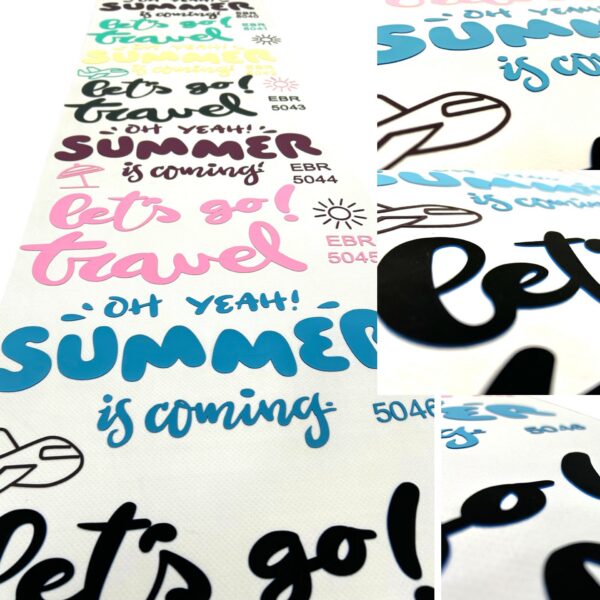 SUMMER
is coming!
let's go!
5041
travel
OH YEAH!
SUMMER
is coming!
let's go!
EBR
5043
travel
OH YEAH!
SUMMER
EBR
5044
is coming!
let's go!
EBR
5045
travel
OH YEAH!
SUMMER
is coming.
5046
let's go!
OH YEAH!
SUMME
is co
SUMMER
is coming
let's
SUMMER
5046